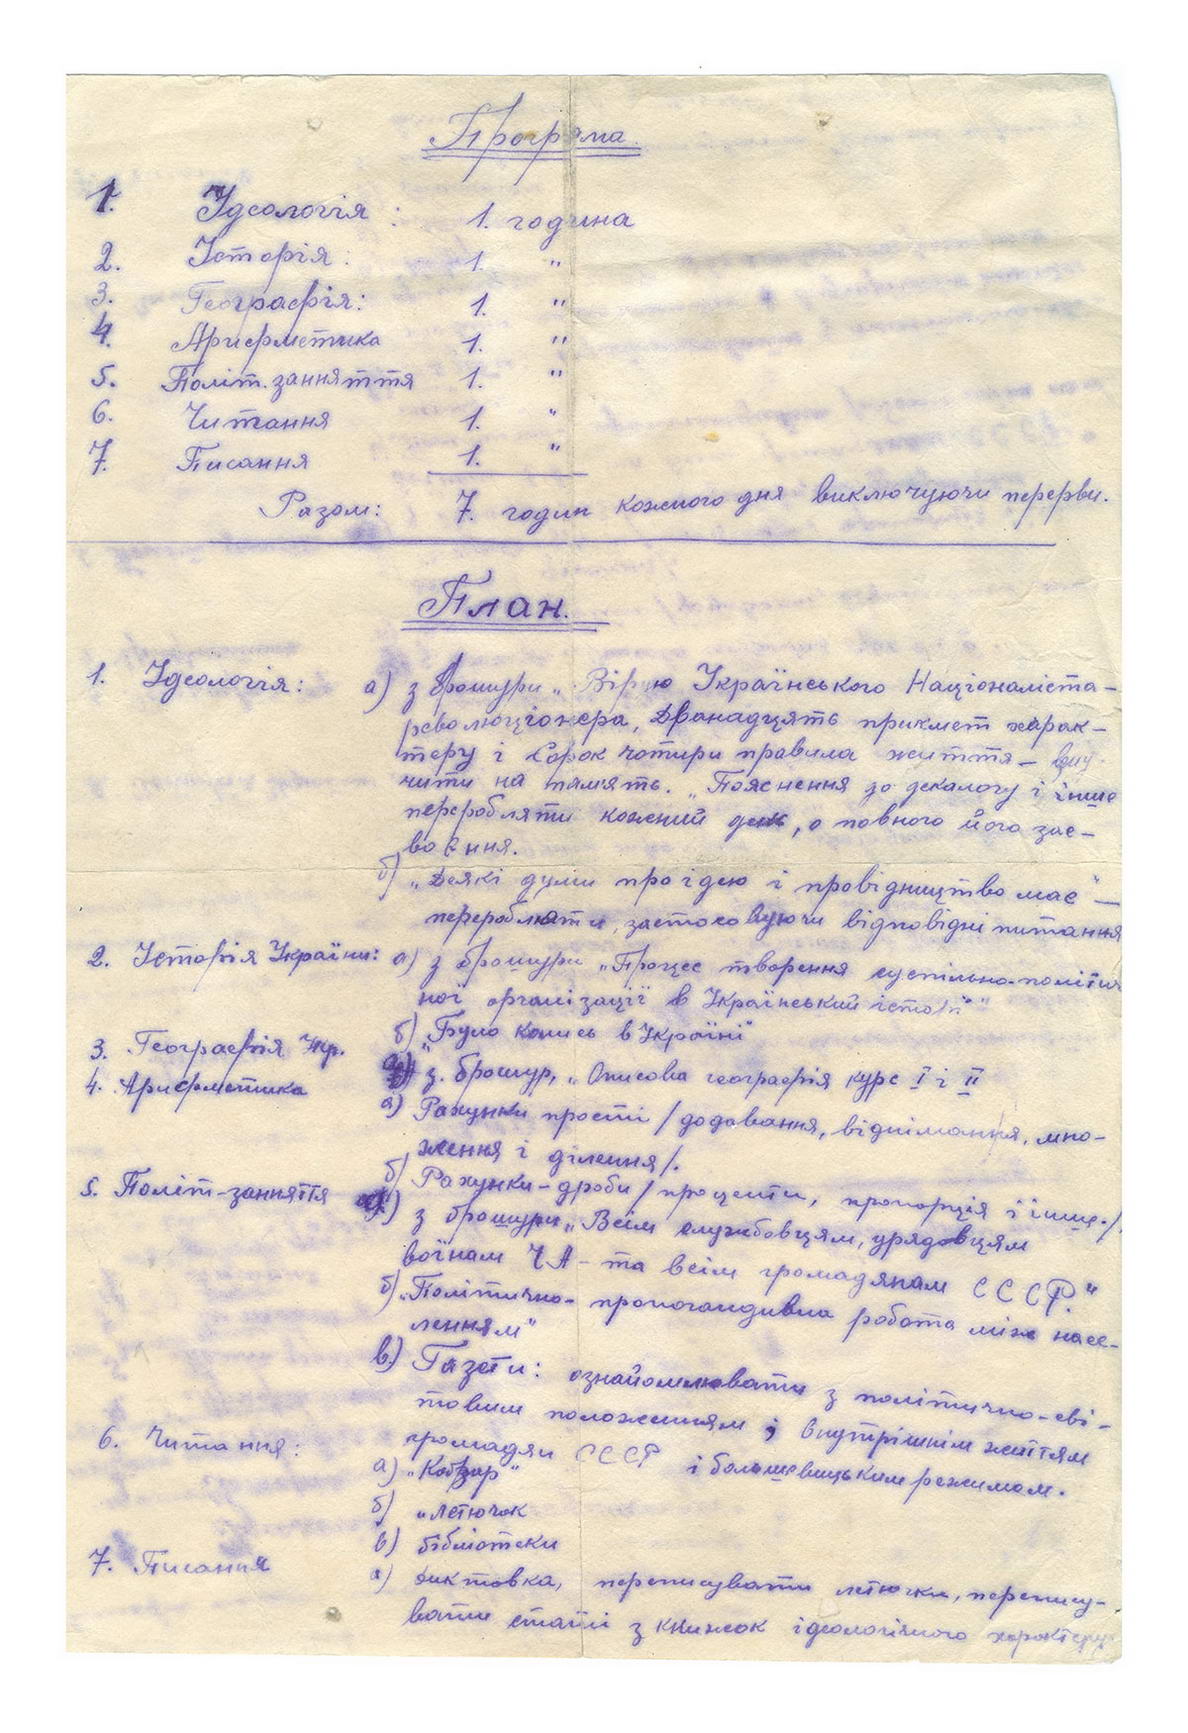 Програма.
1. Ідеологія : 1. година
2. Історія : 1. "
3. Географія: 1. "
4. Арифметика 1. "
5. Політ. занняття 1. "
6. Читання 1. "
7. Писання 1. "
Разом: 7. годин кожного дня виключуючи перерви.
План.
1. Ідеологія: а) з брошури „ Вірую Українського Націоналіста-
революціонера, Дванадцять прикмет харак-
теру і Сорок чотири правила життя – виу-
чити на память. „Пояснення до декалогу і інше
переробляти кожний день, о повного його зас-
воєння.
б) „Деякі думки про ідею і провідництво мас" —
переробляти, застосовуючи відповідні питання
2. Історія України: а) з брошури „Процес творення суспільно-політич
ної організації в Український історії"
б) „Було колись в Україні"
3. Географія Укр. а) з. брошур, „ Описова географія курс I і II
4. Арифметика а) Рахунки прості / додавання, віднімання, мно-
ження і ділення/.
б) Рахунки - дроби / проценти, пропорція і інше./
5. Політ-занняття а) з брошури „Всім службовцям, урядовцям
воїнам ЧА - та всім громадянам СССР."
б) „Політично - пропогандивна робота між насе-
ленням"
в) Газети: ознайомлювати з політично-сві-
товим положенням і внутрішнім життям
громадян СССР і большевицьким режимом.
6. Читання: а) „Кобзар"
б) „летючок
в) бібліотеки
7. Писання а) диктовка, переписувати летючки, перепису-
вати статі з книжок ідеологічного характеру